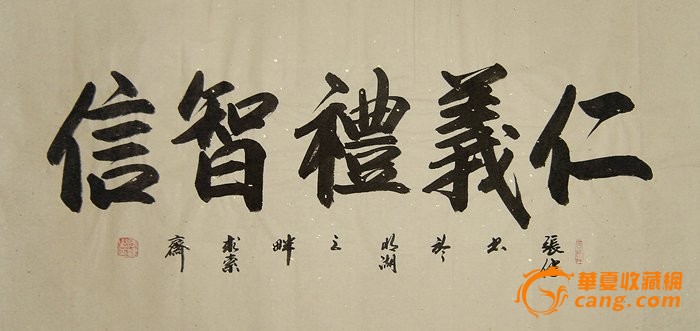 仁義禮智信
張 書於明湖之畔求索齋
華夏收藏網
cang.com